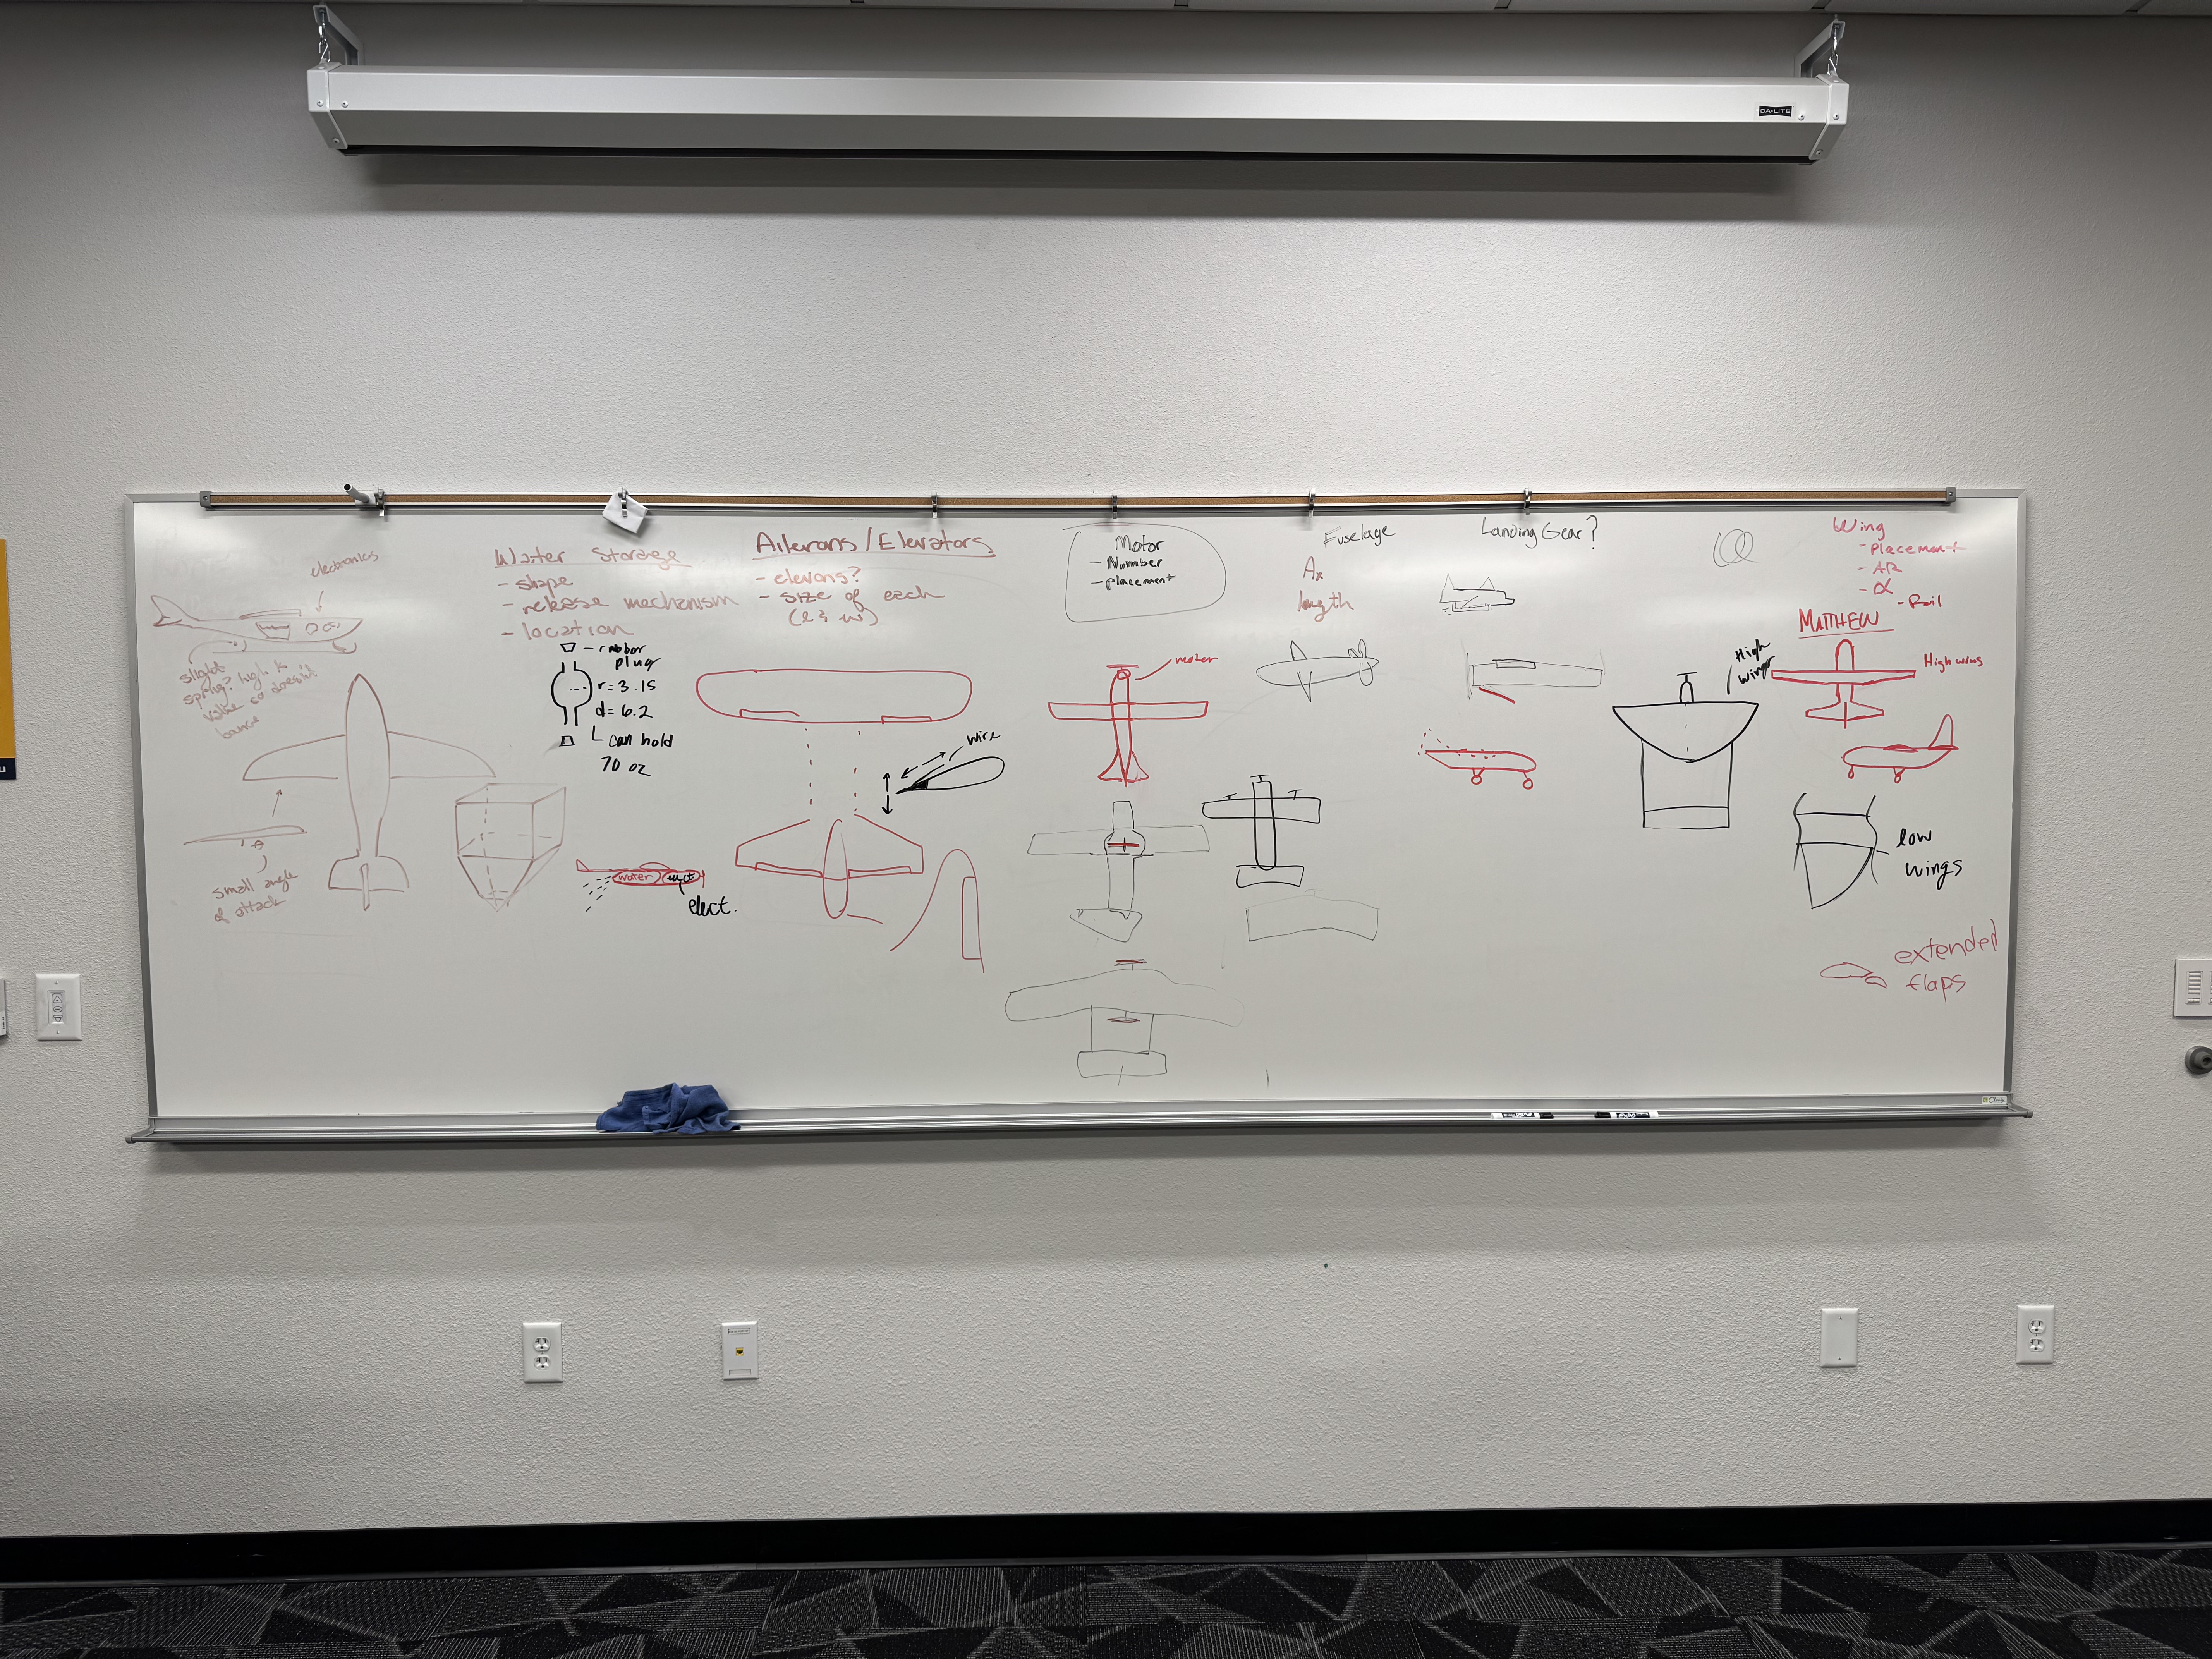 DA-LITE
electronics
slight
spring? high k
value so doesn't
bounce
small angle
of attack
Water Storage
- shape
- release mechanism
- location
- rubber
plug
r = 3.15
d = 6.2
can hold
70 oz
water
elect.
Ailerons / Elevators
- elevons?
- size of each
(l & w)
wire
Motor
- Number
- placement
motor
Fuselage
Ax
length
Landing Gear?
High
wings
Wing
- Placement
- AR
- α
- foil
MATTHEW
High wing
low
wings
extended
flaps
u